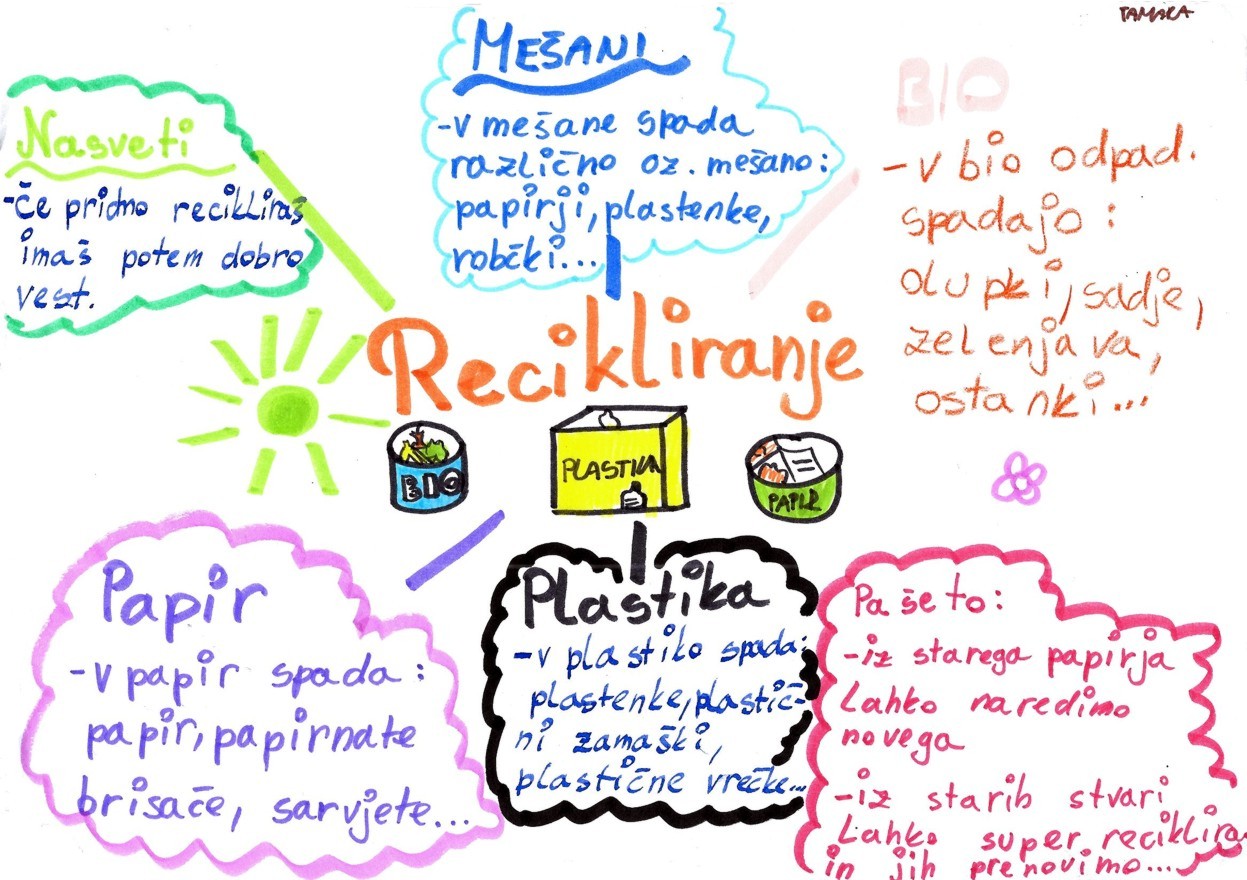 TAMARA
MEŠANI
-v mešane spada
različno oz. mešano:
papirji, plastenke,
robčki...
BIO
-v bio odpad.
spadajo:
olupki, sadje,
zelenjava,
ostanki...
Nasveti
-Če pridno recikliraš
imaš potem dobro
vest.
Recikliranje
BIO
PLASTIKA
PAPIR
Papir
-v papir spada:
papir, papirnate
brisače, sarvjete...
Plastika
-v plastiko spada:
plastenke, plastič-
ni zamaški,
plastične vrečke...
Pa še to:
-iz starega papirja
Lahko naredimo
novega
-iz starih stvari
Lahko super reciklira
in jih prenovimo...